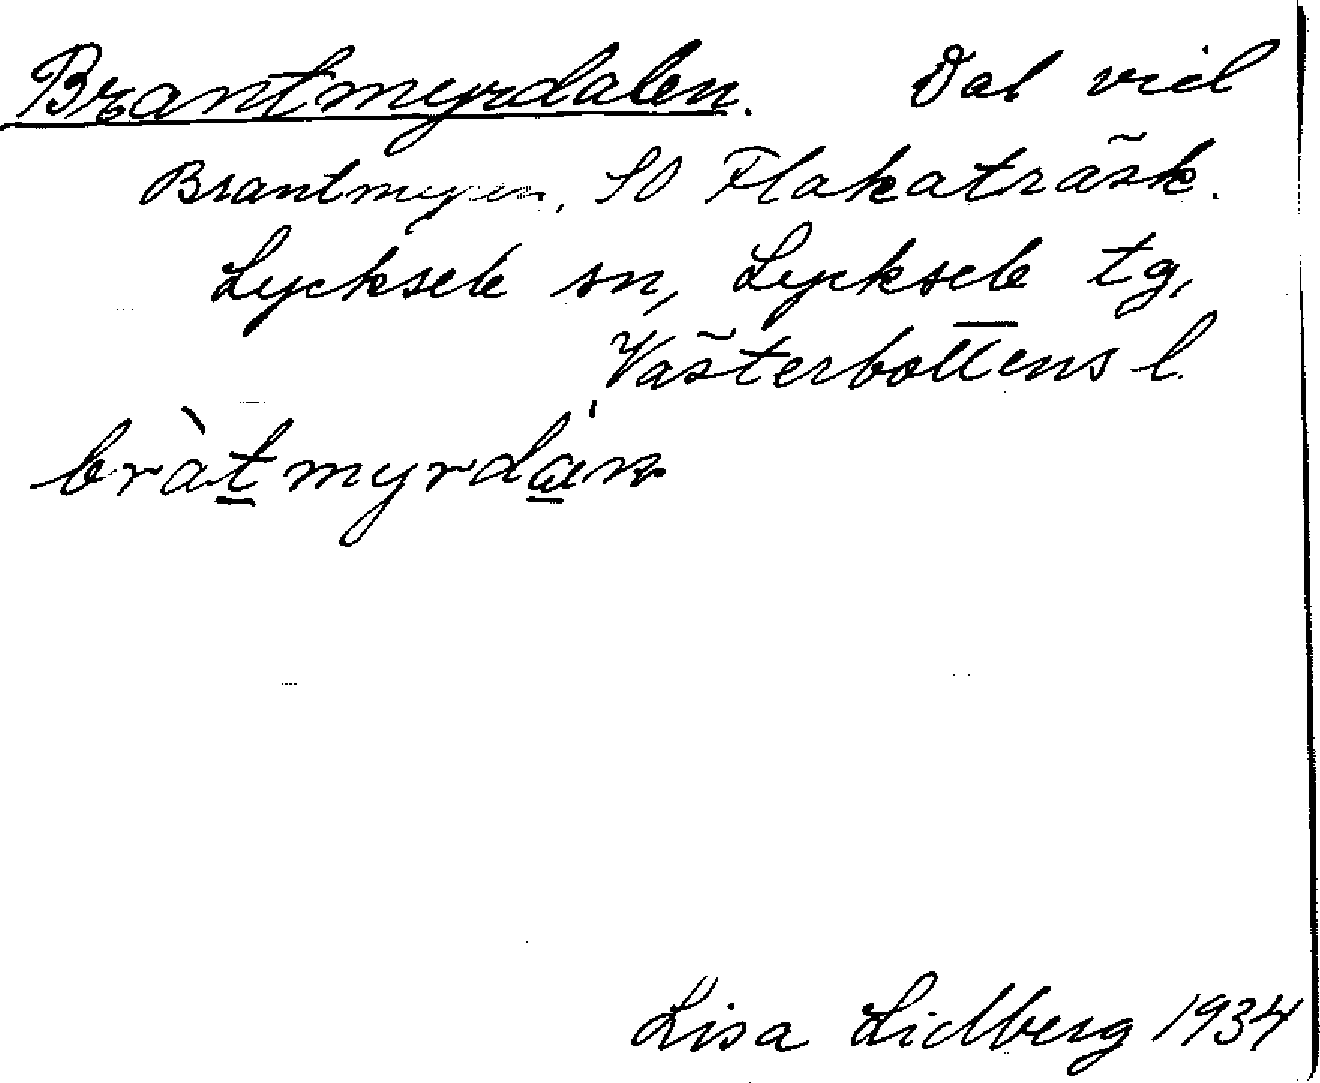 Brantmyrdalen. Dal vid
Brantmyren, SO Flakaträsk.
Lycksele sn, Lycksele tg,
Västerbottens l.
bràtmyrdán
Lisa Lidberg 1934